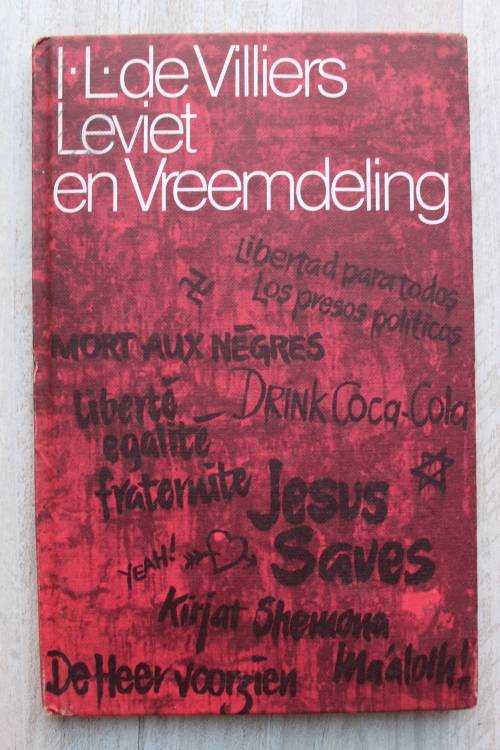 I. L. de Villiers
Leviet
en Vreemdeling
Libertad para todos
Los presos politicos
MORT AUX NÈGRES
liberté
egalité
fraternite
DRINK Coca-Cola
Jesus
Saves
YEAH!
Kirjat Shemona
Ma'aloth!
De Heer voorzien